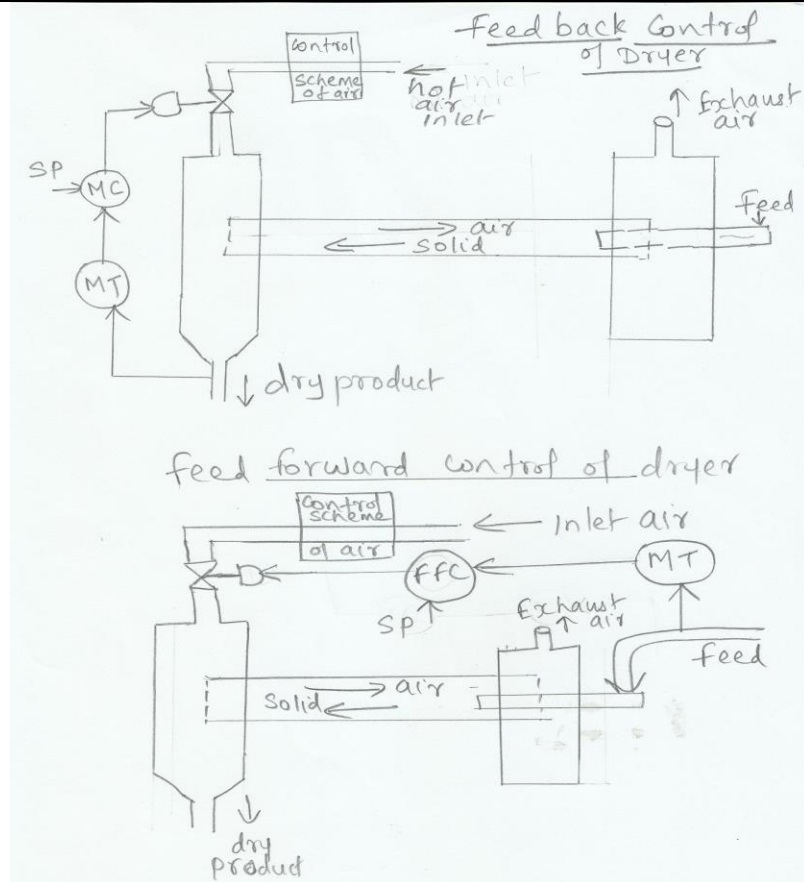 Feed back Control
of Dryer
Control
scheme
of air
hot
air
inlet
Inlet
Exhaust
air
SP
MC
feed
air
solid
MT
dry product
feed forward control of dryer
Control
scheme
of air
Inlet air
FFC
MT
SP
Exhaust
air
feed
air
Solid
dry
product